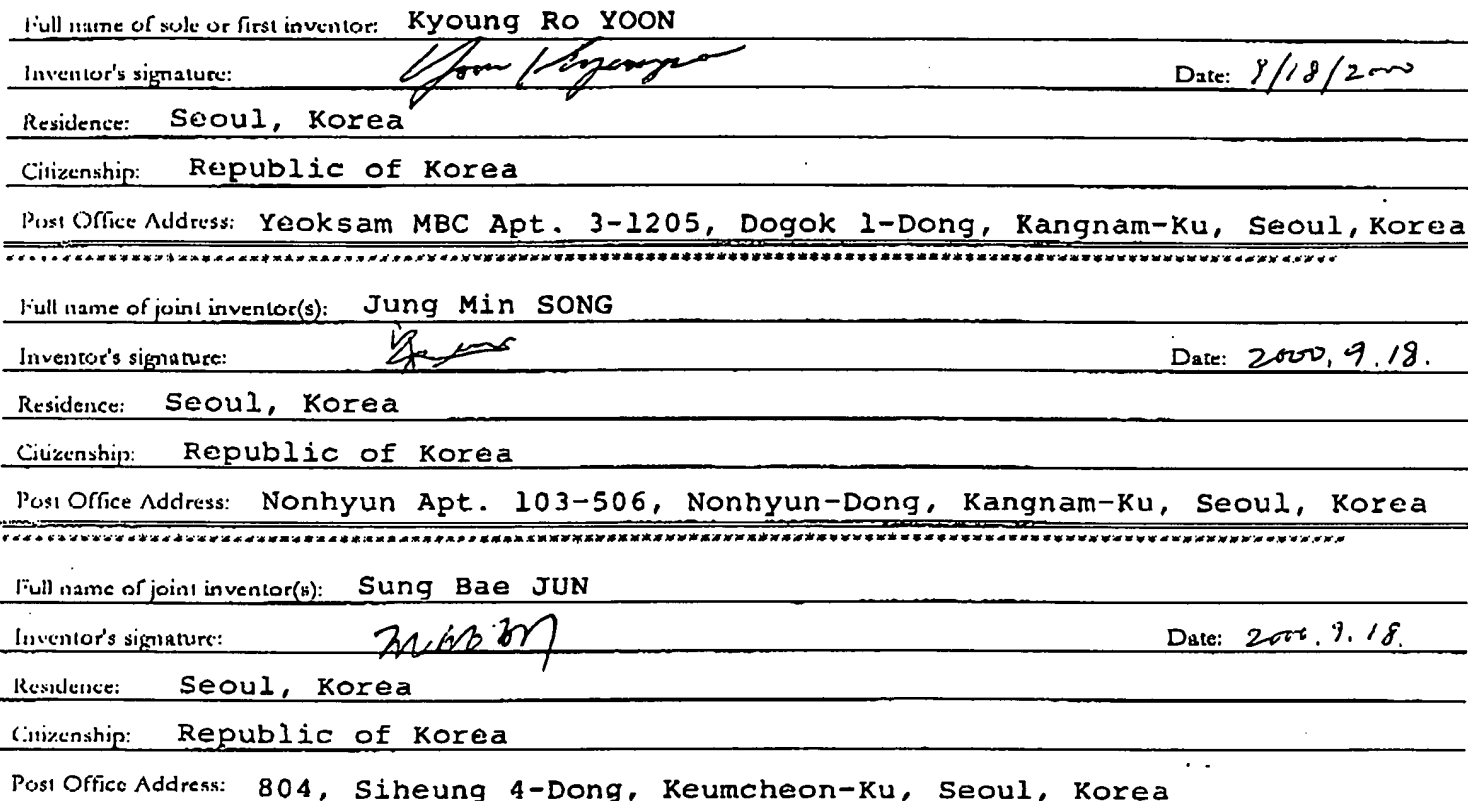 Full name of sole or first inventor: Kyoung Ro YOON
Inventor's signature: Date: 9/18/2000
Residence: Seoul, Korea
Citizenship: Republic of Korea
Post Office Address: Yeoksam MBC Apt. 3-1205, Dogok 1-Dong, Kangnam-Ku, Seoul, Korea
Full name of joint inventor(s): Jung Min SONG
Inventor's signature: Date: 2000, 9.18.
Residence: Seoul, Korea
Citizenship: Republic of Korea
Post Office Address: Nonhyun Apt. 103-506, Nonhyun-Dong, Kangnam-Ku, Seoul, Korea
Full name of joint inventor(s): Sung Bae JUN
Inventor's signature: Date: 2000. 9. 18.
Residence: Seoul, Korea
Citizenship: Republic of Korea
Post Office Address: 804, Siheung 4-Dong, Keumcheon-Ku, Seoul, Korea